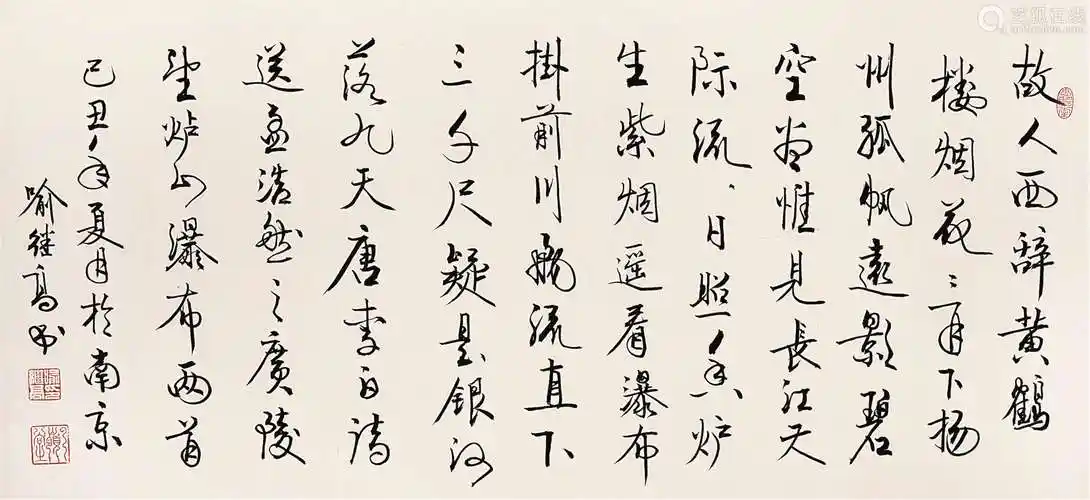 故人西辞黄鹤
楼烟花三月下扬
州孤帆遠影碧
空尽惟見長江天
际流、日照香炉
生紫烟遥看瀑布
掛前川飛流直下
三千尺疑是银河
落九天唐李白诗
送孟浩然之廣陵
望炉山瀑布两首
己丑年夏月於南京
喻继高书
艺狐在线